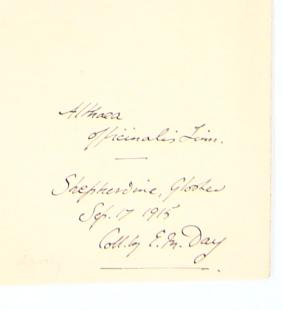 Althaea
officinalis Linn.
Shepherdine, Gloster
Sep. 17 1915
Coll. by E. M. Day